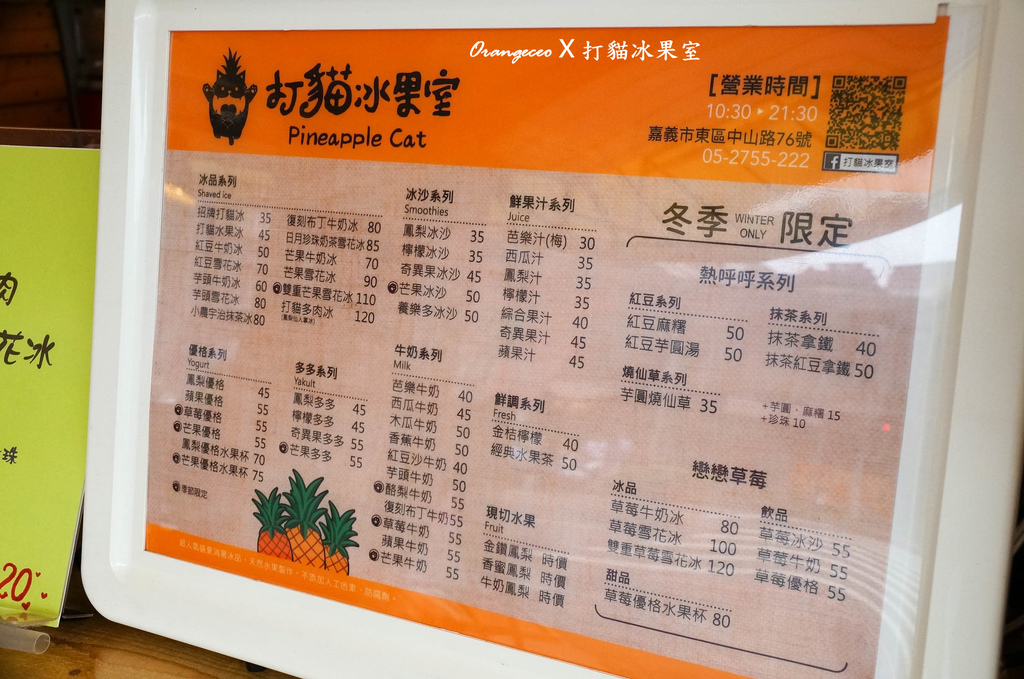 Orangeceo X 打貓冰果室
打貓冰果室
Pineapple Cat
[營業時間]
10:30 ▸ 21:30
嘉義市東區中山路76號
05-2755-222
f 打貓冰果室
冰品系列
Shaved ice
招牌打貓冰 35
打貓水果冰 45
紅豆牛奶冰 50
紅豆雪花冰 70
芋頭牛奶冰 60
芋頭雪花冰 80
小農宇治抹茶冰 80
復刻布丁牛奶冰 80
日月珍珠奶茶雪花冰 85
芒果牛奶冰 70
芒果雪花冰 90
雙重芒果雪花冰 110
打貓多肉冰 120
冰沙系列
Smoothies
鳳梨冰沙 35
檸檬冰沙 35
奇異果冰沙 45
芒果冰沙 50
養樂多冰沙 50
鮮果汁系列
Juice
芭樂汁(梅) 30
西瓜汁 35
鳳梨汁 35
檸檬汁 35
綜合果汁 40
奇異果汁 45
蘋果汁 45
優格系列
Yogurt
鳳梨優格 45
蘋果優格 55
草莓優格 55
芒果優格 55
鳳梨優格水果杯 70
芒果優格水果杯 75
季節限定
多多系列
Yakult
鳳梨多多 45
檸檬多多 45
奇異果多多 55
芒果多多 55
牛奶系列
Milk
芭樂牛奶 40
西瓜牛奶 45
木瓜牛奶 50
香蕉牛奶 50
紅豆沙牛奶 40
芋頭牛奶 50
酪梨牛奶 55
復刻布丁牛奶 55
草莓牛奶 55
蘋果牛奶 55
芒果牛奶 55
鮮調系列
Fresh
金桔檸檬 40
經典水果茶 50
現切水果
Fruit
金鑽鳳梨 時價
香蜜鳳梨 時價
牛奶鳳梨 時價
冬季 WINTER ONLY 限定
熱呼呼系列
紅豆系列
紅豆麻糬 50
紅豆芋圓湯 50
燒仙草系列
芋圓燒仙草 35
抹茶系列
抹茶拿鐵 40
抹茶紅豆拿鐵 50
+芋圓．麻糬 15
+珍珠 10
戀戀草莓
冰品
草莓牛奶冰 80
草莓雪花冰 100
雙重草莓雪花冰 120
甜品
草莓優格水果杯 80
飲品
草莓冰沙 55
草莓牛奶 55
草莓優格 55
肉
花冰
珠
20